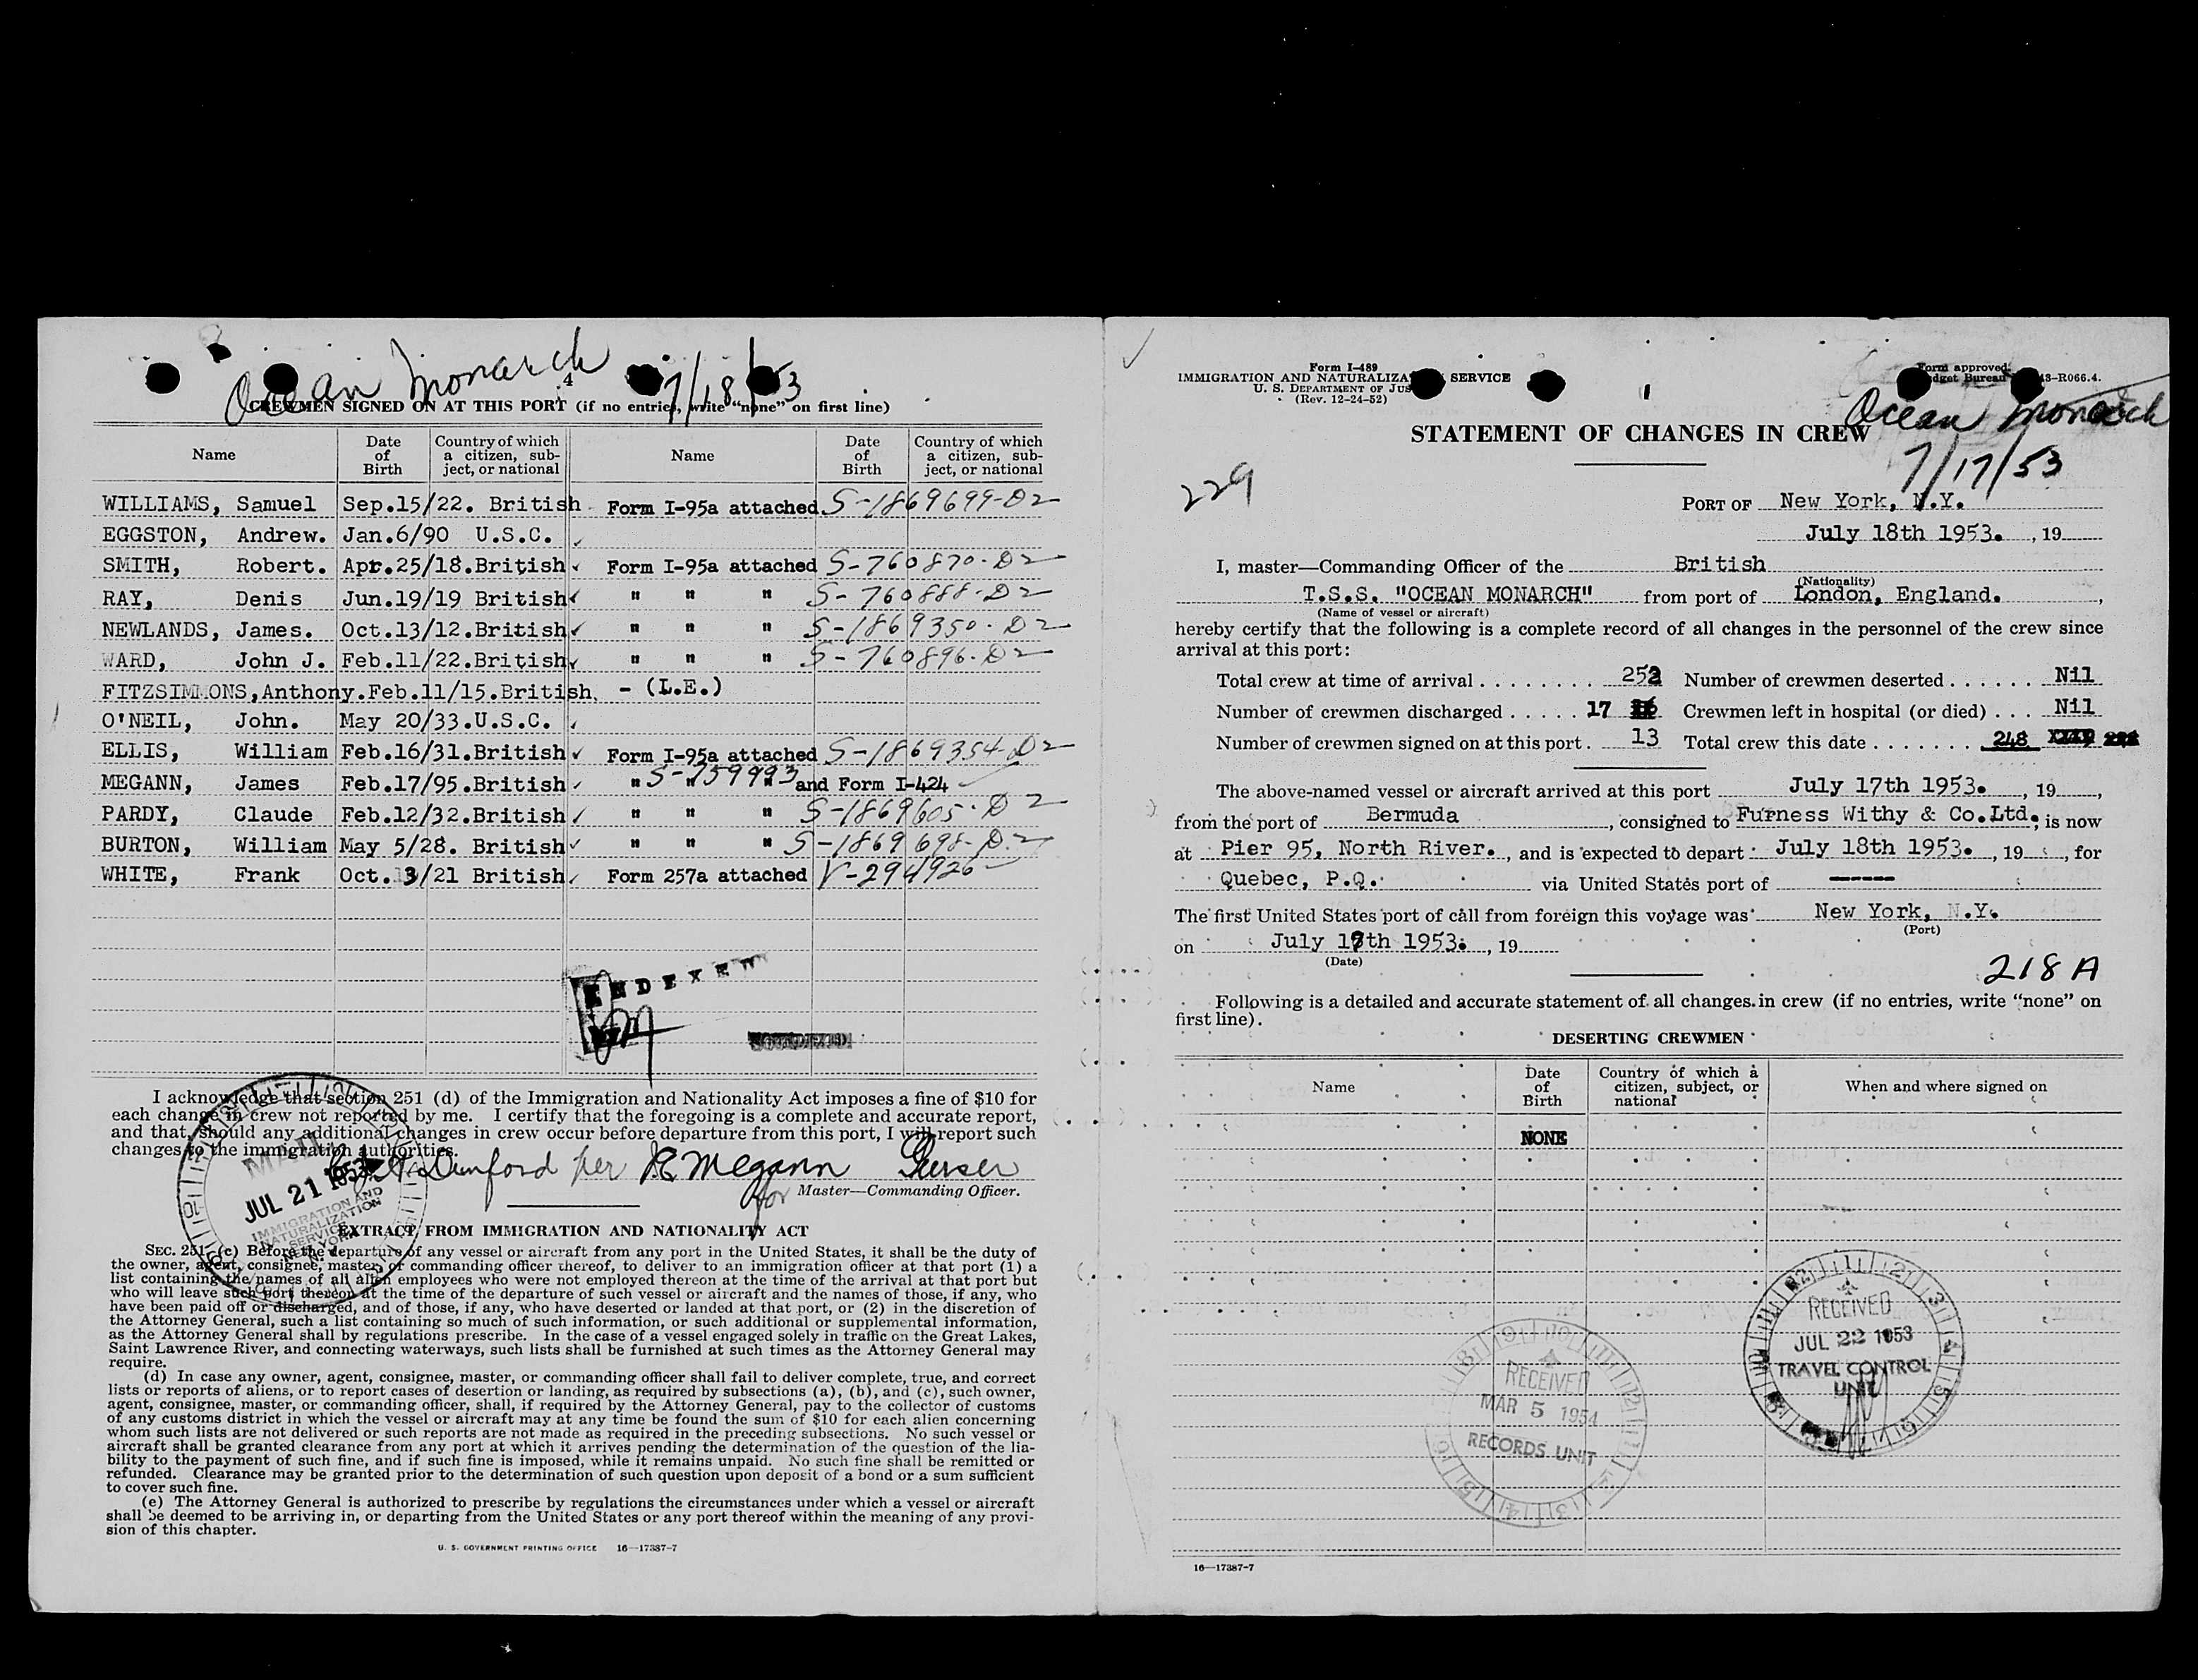 Ocean Monarch 7/18/53
4
CREWMEN SIGNED ON AT THIS PORT (if no entries, write "none" on first line)
Name | Date of Birth | Country of which a citizen, subject, or national | Name | Date of Birth | Country of which a citizen, subject, or national
WILLIAMS, Samuel Sep.15/22. British Form I-95a attached S-1869699-D2
EGGSTON, Andrew. Jan.6/90 U.S.C. ✓
SMITH, Robert. Apr.25/18.British ✓ Form I-95a attached S-760870-D2
RAY, Denis Jun.19/19 British ✓ " " " S-760888-D2
NEWLANDS, James. Oct.13/12.British ✓ " " " S-1869350-D2
WARD, John J. Feb.11/22.British ✓ " " " S-760896-D2
FITZSIMMONS,Anthony.Feb.11/15.British. - (L.E.)
O'NEIL, John. May 20/33.U.S.C. ✓
ELLIS, William Feb.16/31.British ✓ Form I-95a attached S-1869354-D2
MEGANN, James Feb.17/95.British ✓ " " " S-759993 and Form I-424
PARDY, Claude Feb.12/32.British ✓ " " " S-1869605-D2
BURTON, William May 5/28. British ✓ " " " S-1869698-D2
WHITE, Frank Oct. 3/21 British ✓ Form 257a attached V-294926
INDEXED
I acknowledge that section 251 (d) of the Immigration and Nationality Act imposes a fine of $10 for
each change in crew not reported by me. I certify that the foregoing is a complete and accurate report,
and that, should any additional changes in crew occur before departure from this port, I will report such
changes to the immigration authorities.
Dunford per JE Megann Purser
for Master—Commanding Officer.
MAIL
JUL 21 1953
IMMIGRATION AND
NATURALIZATION
SERVICE
NEW YORK, N.Y.
EXTRACT FROM IMMIGRATION AND NATIONALITY ACT
SEC. 251. (c) Before the departure of any vessel or aircraft from any port in the United States, it shall be the duty of
the owner, agent, consignee, master, or commanding officer thereof, to deliver to an immigration officer at that port (1) a
list containing the names of all alien employees who were not employed thereon at the time of the arrival at that port but
who will leave such port thereon at the time of the departure of such vessel or aircraft and the names of those, if any, who
have been paid off or discharged, and of those, if any, who have deserted or landed at that port, or (2) in the discretion of
the Attorney General, such a list containing so much of such information, or such additional or supplemental information,
as the Attorney General shall by regulations prescribe. In the case of a vessel engaged solely in traffic on the Great Lakes,
Saint Lawrence River, and connecting waterways, such lists shall be furnished at such times as the Attorney General may
require.
(d) In case any owner, agent, consignee, master, or commanding officer shall fail to deliver complete, true, and correct
lists or reports of aliens, or to report cases of desertion or landing, as required by subsections (a), (b), and (c), such owner,
agent, consignee, master, or commanding officer, shall, if required by the Attorney General, pay to the collector of customs
of any customs district in which the vessel or aircraft may at any time be found the sum of $10 for each alien concerning
whom such lists are not delivered or such reports are not made as required in the preceding subsections. No such vessel or
aircraft shall be granted clearance from any port at which it arrives pending the determination of the question of the lia-
bility to the payment of such fine, and if such fine is imposed, while it remains unpaid. No such fine shall be remitted or
refunded. Clearance may be granted prior to the determination of such question upon deposit of a bond or a sum sufficient
to cover such fine.
(e) The Attorney General is authorized to prescribe by regulations the circumstances under which a vessel or aircraft
shall be deemed to be arriving in, or departing from the United States or any port thereof within the meaning of any provi-
sion of this chapter.
U. S. GOVERNMENT PRINTING OFFICE 16—17387-7
Form I-489
IMMIGRATION AND NATURALIZA SERVICE
U. S. DEPARTMENT OF JUS
(Rev. 12-24-52)
Form approved.
dget Bureau 43-R066.4.
Ocean Monarch
7/17/53
STATEMENT OF CHANGES IN CREW
229
PORT OF New York, N.Y.
July 18th 1953. , 19
I, master—Commanding Officer of the British
(Nationality)
T.S.S. "OCEAN MONARCH" from port of London, England. ,
(Name of vessel or aircraft)
hereby certify that the following is a complete record of all changes in the personnel of the crew since
arrival at this port:
Total crew at time of arrival . . . . . . . . . 252 Number of crewmen deserted . . . . . . Nil
Number of crewmen discharged . . . . . 17 Crewmen left in hospital (or died) . . . Nil
Number of crewmen signed on at this port . 13 Total crew this date . . . . . . . 248
The above-named vessel or aircraft arrived at this port July 17th 1953. , 19 ,
from the port of Bermuda , consigned to Furness Withy & Co.Ltd. ; is now
at Pier 95, North River. , and is expected to depart July 18th 1953. , 19 , for
Quebec, P.Q. via United States port of ------
The first United States port of call from foreign this voyage was New York, N.Y.
(Port)
on July 17th 1953. , 19
(Date)
218 A
Following is a detailed and accurate statement of all changes in crew (if no entries, write "none" on
first line).
DESERTING CREWMEN
Name | Date of Birth | Country of which a citizen, subject, or national | When and where signed on
NONE
RECEIVED
JUL 22 1953
TRAVEL CONTROL
UNIT
RECEIVED
MAR 5 1954
RECORDS UNIT
16—17387-7